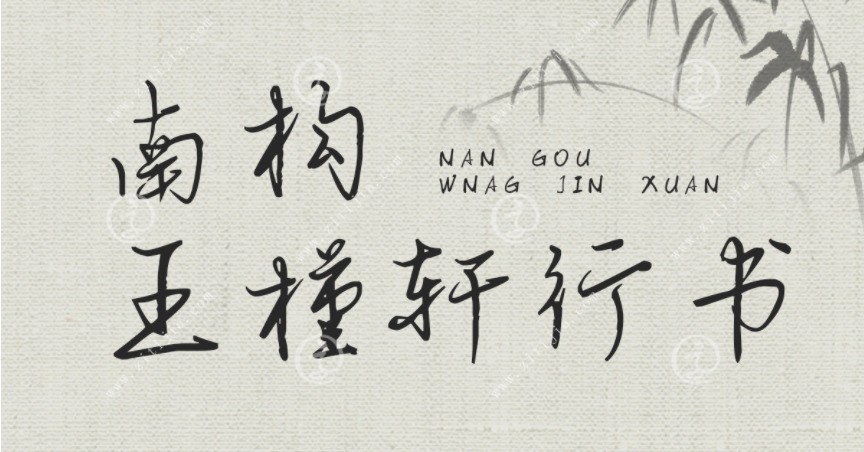 南构
NAN GOU
WNAG JIN XUAN
王槿轩行书